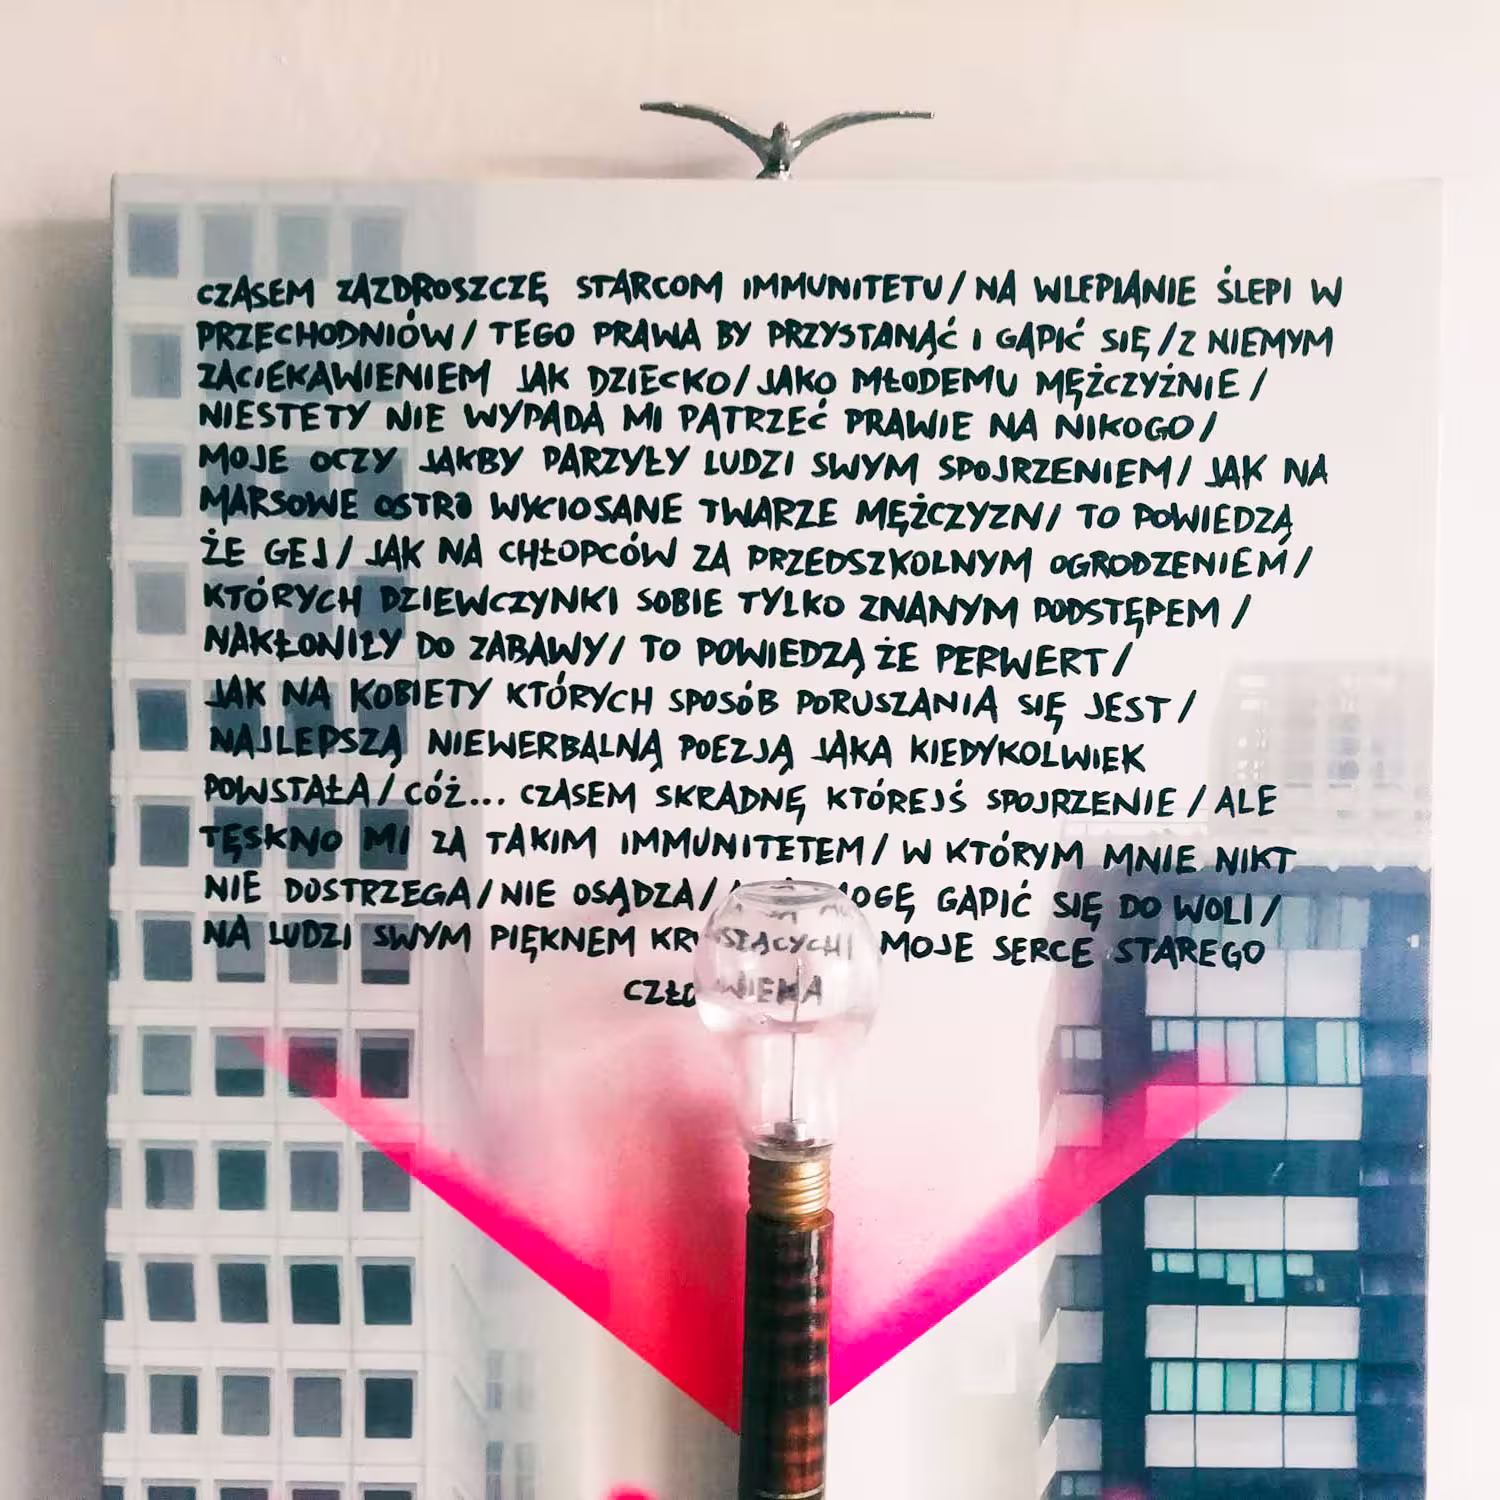 CZASEM ZAZDROSZCZĘ STARCOM IMMUNITETU/ NA WLEPIANIE ŚLEPI W
PRZECHODNIÓW/ TEGO PRAWA BY PRZYSTANĄĆ I GAPIĆ SIĘ/Z NIEMYM
ZACIEKAWIENIEM JAK DZIECKO/ JAKO MŁODEMU MĘŻCZYŹNIE/
NIESTETY NIE WYPADA MI PATRZEĆ PRAWIE NA NIKOGO/
MOJE OCZY JAKBY PARZYŁY LUDZI SWYM SPOJRZENIEM/ JAK NA
MARSOWE OSTRO WYCIOSANE TWARZE MĘŻCZYZN/ TO POWIEDZĄ
ŻE GEJ/ JAK NA CHŁOPCÓW ZA PRZEDSZKOLNYM OGRODZENIEM/
KTÓRYCH DZIEWCZYNKI SOBIE TYLKO ZNANYM PODSTĘPEM/
NAKŁONIŁY DO ZABAWY/ TO POWIEDZĄ ŻE PERWERT/
JAK NA KOBIETY KTÓRYCH SPOSÓB PORUSZANIA SIĘ JEST/
NAJLEPSZĄ NIEWERBALNĄ POEZJĄ JAKA KIEDYKOLWIEK
POWSTAŁA/ CÓŻ... CZASEM SKRADNĘ KTÓREJŚ SPOJRZENIE/ ALE
TĘSKNO MI ZA TAKIM IMMUNITETEM/ W KTÓRYM MNIE NIKT
NIE DOSTRZEGA/ NIE OSĄDZA/ MOGĘ GAPIĆ SIĘ DO WOLI/
NA LUDZI SWYM PIĘKNEM KRUSZĄCYCH MOJE SERCE STAREGO
CZŁOWIEKA